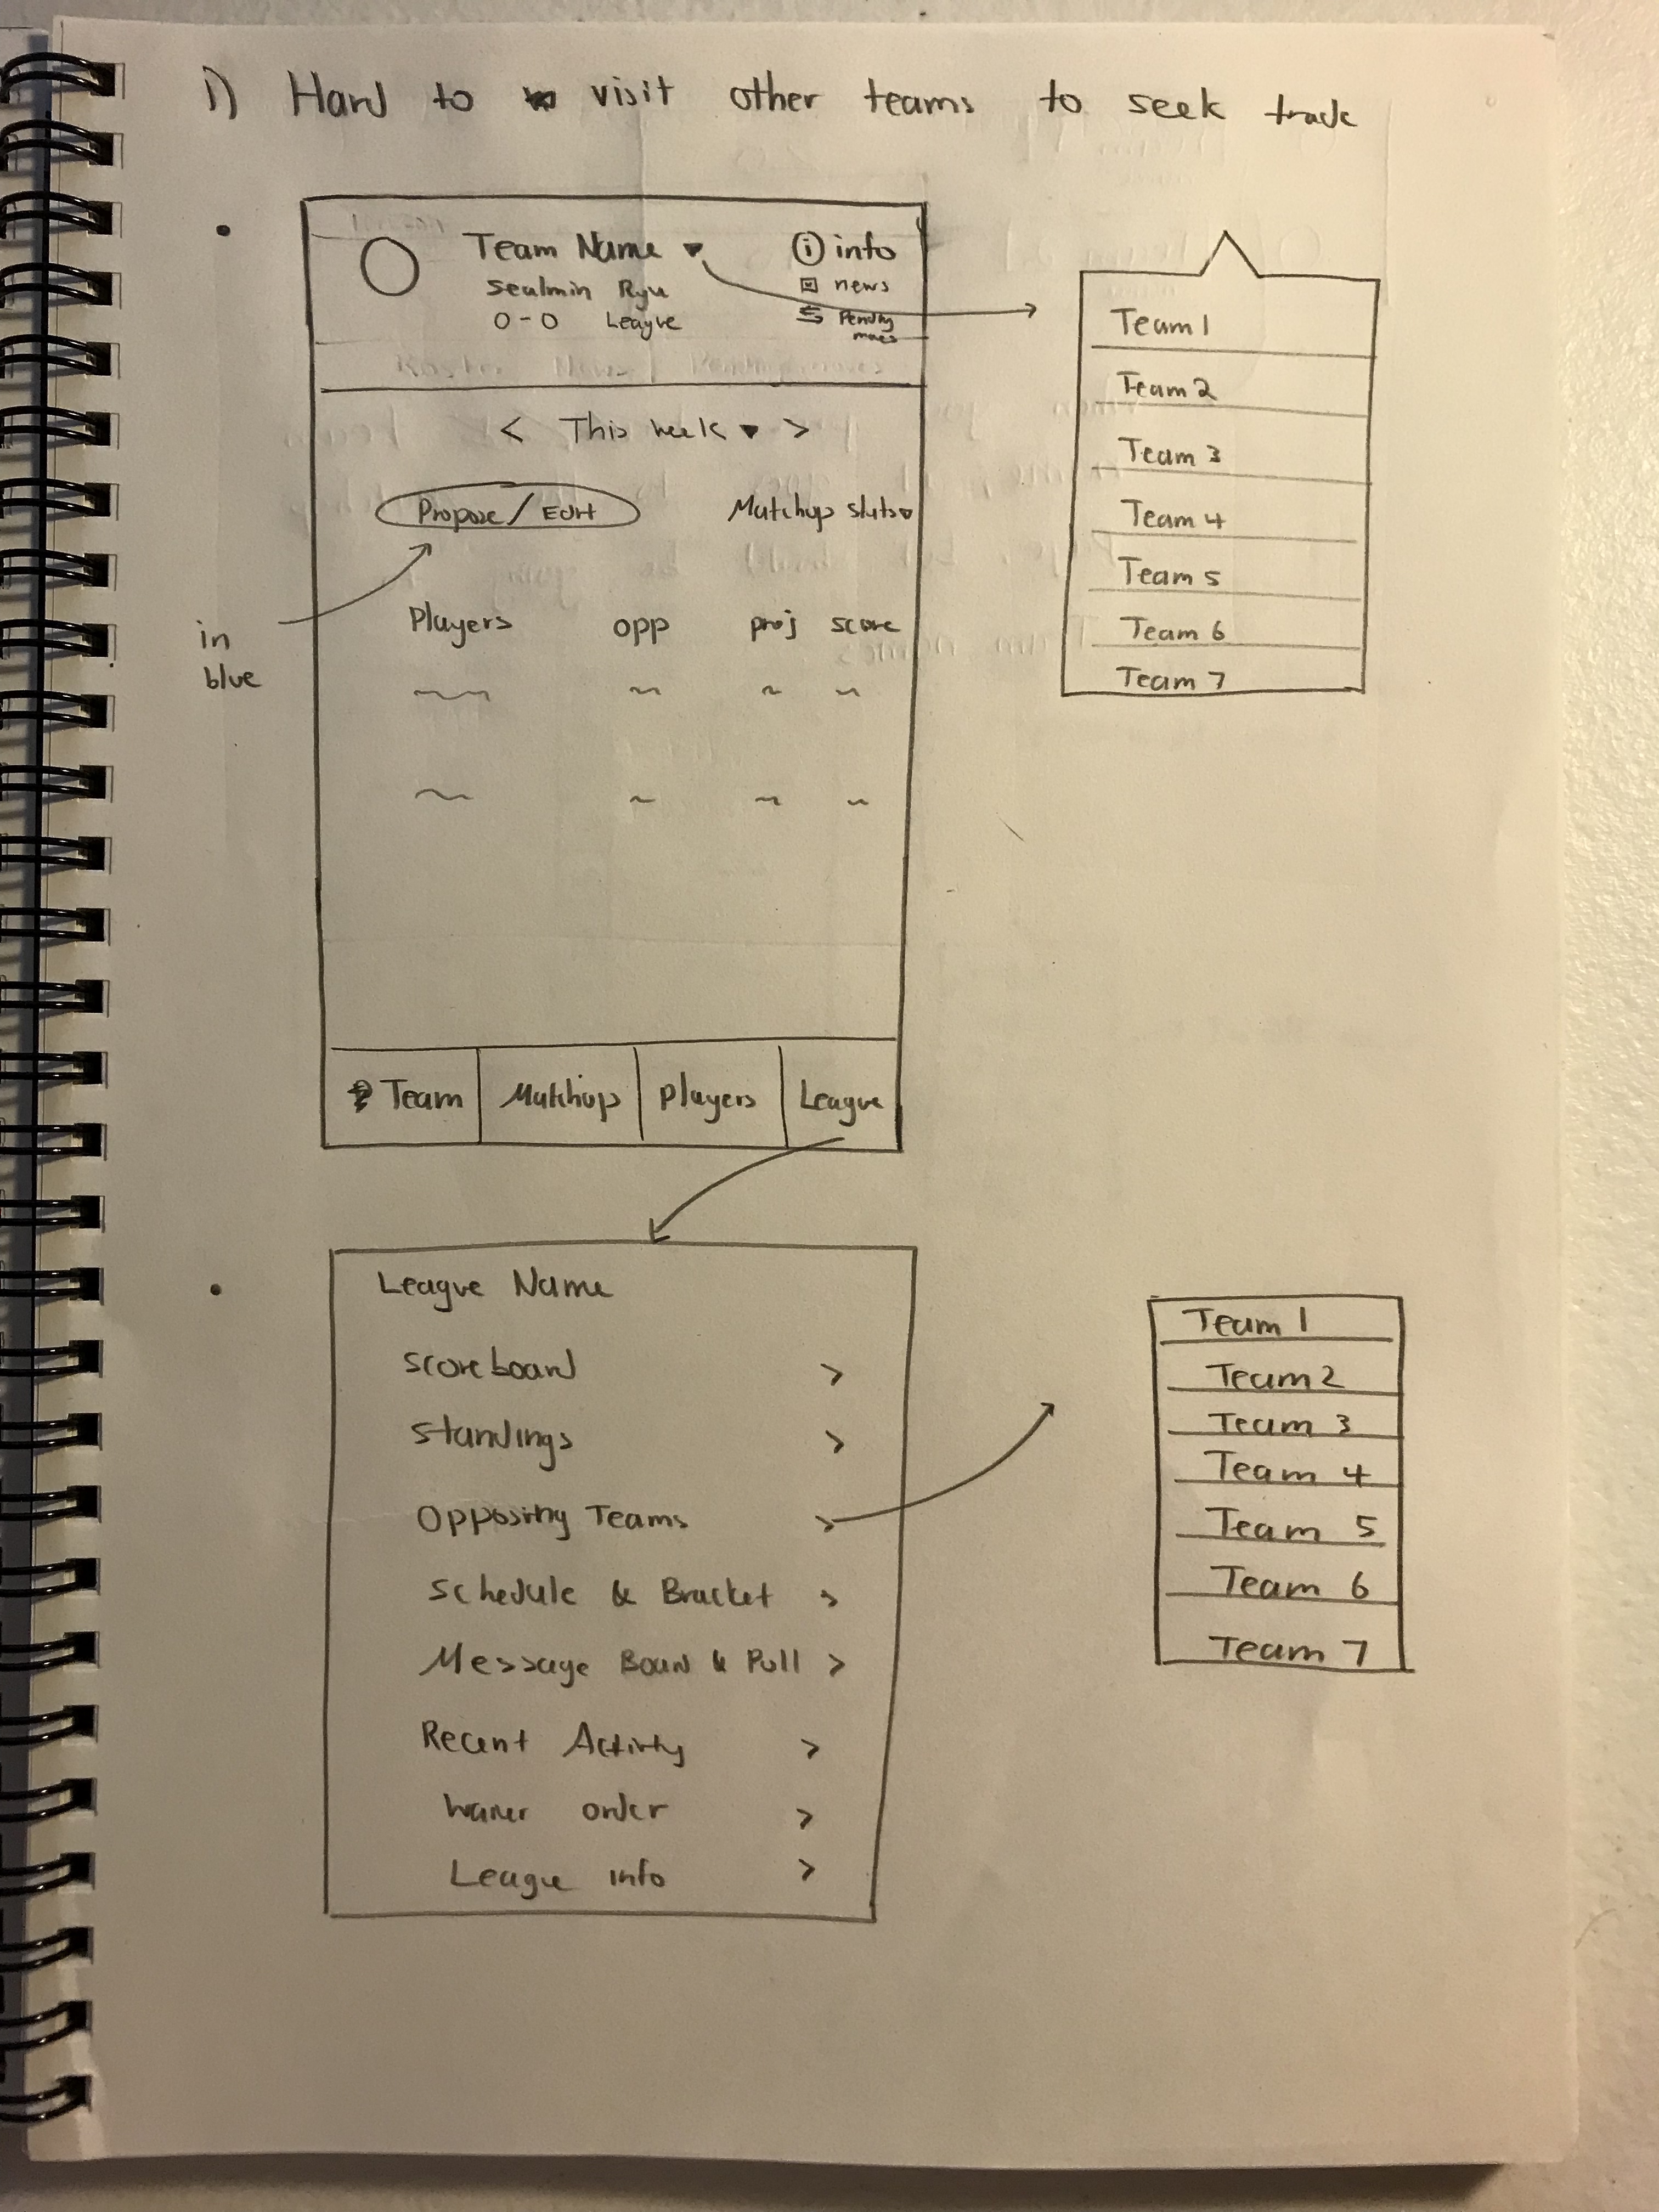 1) Hard to visit other teams to seek trade
Team Name ▾
Sealmin Ryu
0-0 League
i info
news
Pending moves
< This week ▾ >
Propose / Edit
Matchup stats
in
blue
Players opp proj score
Team Matchups Players League
Team 1
Team 2
Team 3
Team 4
Team 5
Team 6
Team 7
League Name
Scoreboard >
Standings >
Opposing Teams >
Schedule & Bracket >
Message Board & Poll >
Recent Activity >
Waiver order >
League info >
Team 1
Team 2
Team 3
Team 4
Team 5
Team 6
Team 7